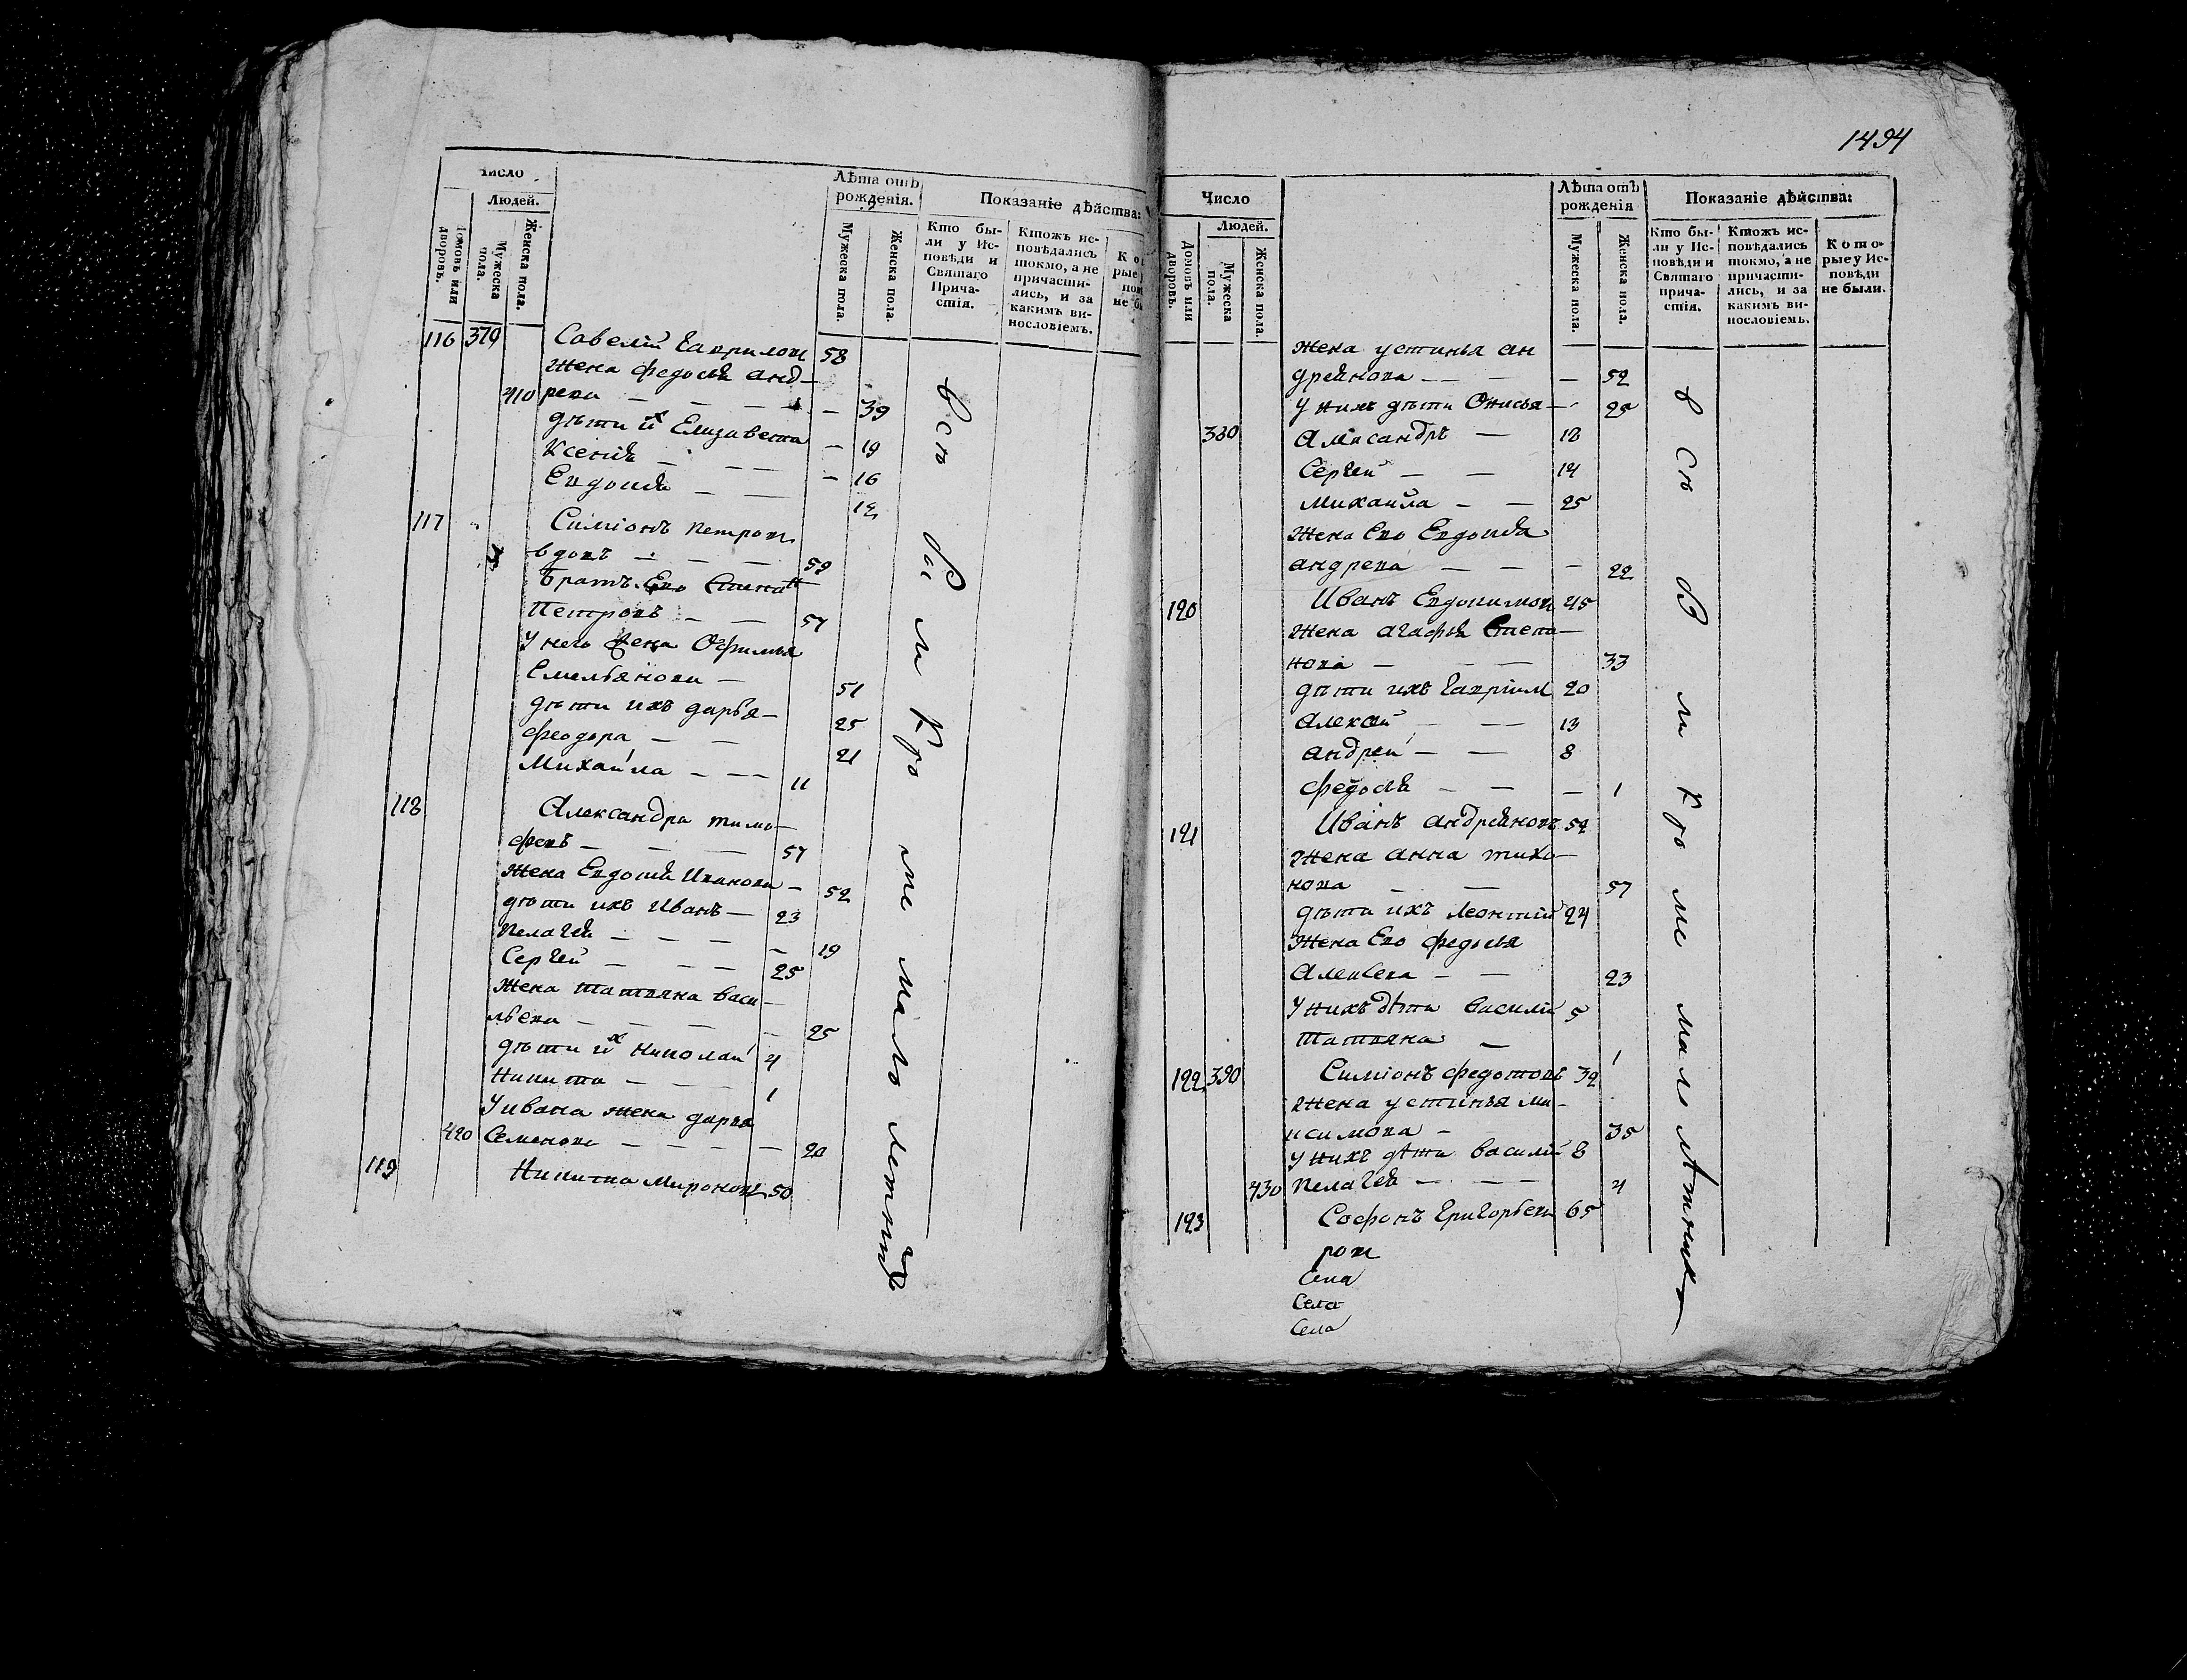 Число
Людей.
Домовъ или дворовъ.
Мужеска пола.
Женска пола.
Лѣта отъ рожденія.
Мужеска пола.
Женска пола.
Показаніе дѣйства:
Кто бы-
ли у Ис-
повѣди и
Святаго
Прича-
стія.
Ктожъ ис-
повѣдались
токмо, а не
причасти-
лись, и за
какимъ ви-
нословіемъ.
116 379 Савелій Гавриловъ 58
Жена Федосья анд-
410 реева — — — — 39
дѣти их Елизавета — 19
Ксенія — — — 16
Евдокия — — 12
117 Симіонъ Петровъ
вдовъ — — — 59
братъ Его Степанъ
Петровъ — — 57
У него Жена Офимья
Емельянова — 51
дѣти ихъ дарья — 25
Феодора — — 21
Михайла — — — 11
118 Александра тимо-
феевъ — — — 57
Жена Евдокия Иванова — 52
дѣти ихъ Иванъ — 23
Пелагея — — — — 19
Сергей — — — 25
Жена татьяна васи-
льева — — — — 25
дѣти их Николай 4
Никита — — — 1
У ивана жена дарья
420 Семенова — — — — 20
119 Никита Мироновъ 50
всѣ были кроме малолетнихъ
1494
Число
Людей.
Домовъ или дворовъ.
Мужеска пола.
Женска пола.
Лѣта отъ рожденія
Мужеска пола.
Женска пола.
Показаніе дѣйства:
Кто бы-
ли у Ис-
повѣди и
Святаго
прича-
стія.
Ктожъ ис-
повѣдались
токмо, а не
причасти-
лись, и за
какимъ ви-
нословіемъ.
Кото-
рые у Ис-
повѣди
не были.
Жена устинья ан
дреянова — — — — 52
У нихъ дѣти Онисья — 25
380 Александръ — 18
Сергей — — 14
Михайла — — 25
Жена Его Евдокия
андреева — — — — 22
120 Иванъ Евдокимовъ 45
Жена агафья Степа-
нова — — — 33
дѣти ихъ Гавріилъ 20
Алексей — — — 13
андрей — — 8
Федосья — — — 1
121 Иванъ андреяновъ 52
Жена анна тихо-
нова — — 57
дѣти ихъ Леонтій 24
Жена Его Федосья
Алексеева — — 23
У нихъ дѣти василій 5
татьяна — 1
122 390 Симіонъ Федотовъ 32
Жена устинья ма-
ксимова — 35
У нихъ дѣти василій 8
430 Пелагея — — — 4
123 Софонъ Григорьевъ 65
всѣ были кроме малолѣтнихъ
Села
Села
Села